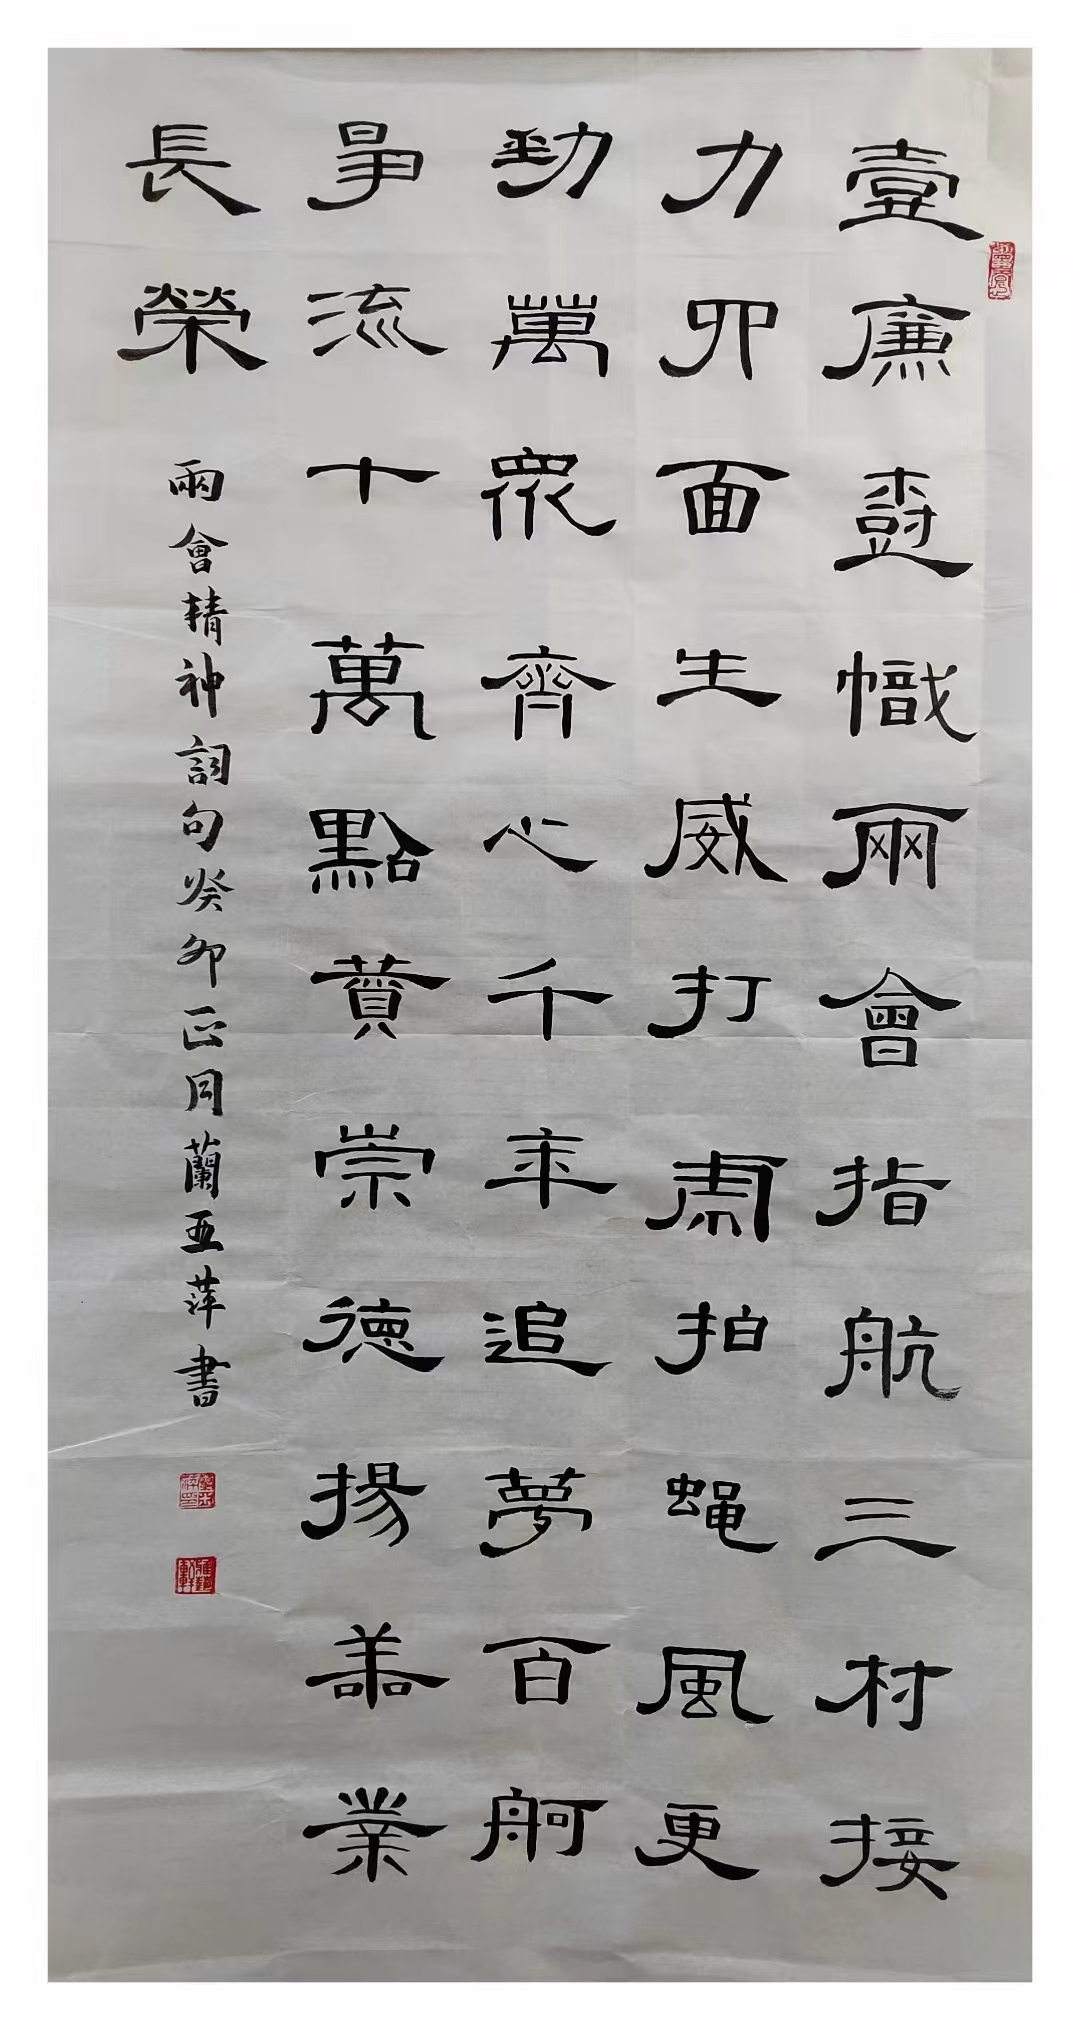 壹廉樹幟兩會指航三村接
力四面生威打虎拍蝇風更
勁萬衆齊心千年追夢百舸
爭流十萬點贊崇德揚善業
長榮
兩會精神詞句癸卯正月蘭亞萍書